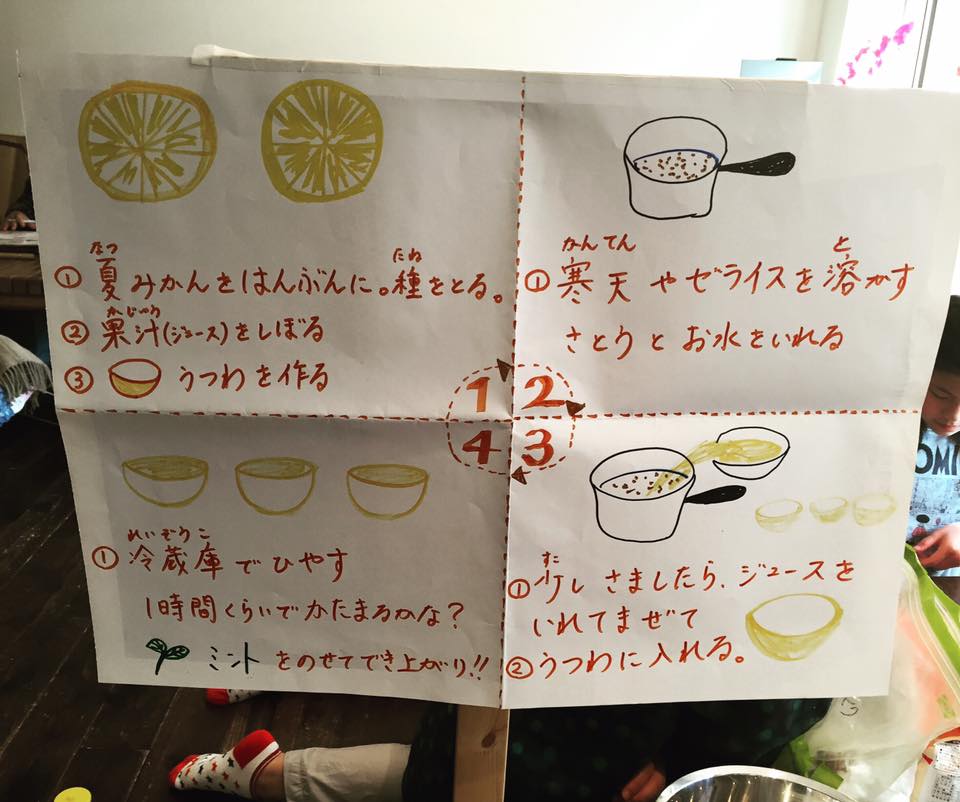 なつ
たね
① 夏みかんをはんぶんに。種をとる。
かじゅう
② 果汁(ジュース)をしぼる
③ うつわを作る
1
かんてん
と
① 寒天やゼライスを溶かす
さとうとお水をいれる
2
すこ
① 少しさましたら、ジュースを
いれてまぜて
② うつわに入れる。
3
れいぞうこ
① 冷蔵庫でひやす
1時間くらいでかたまるかな?
ミントをのせてでき上がり!!
4
OMI